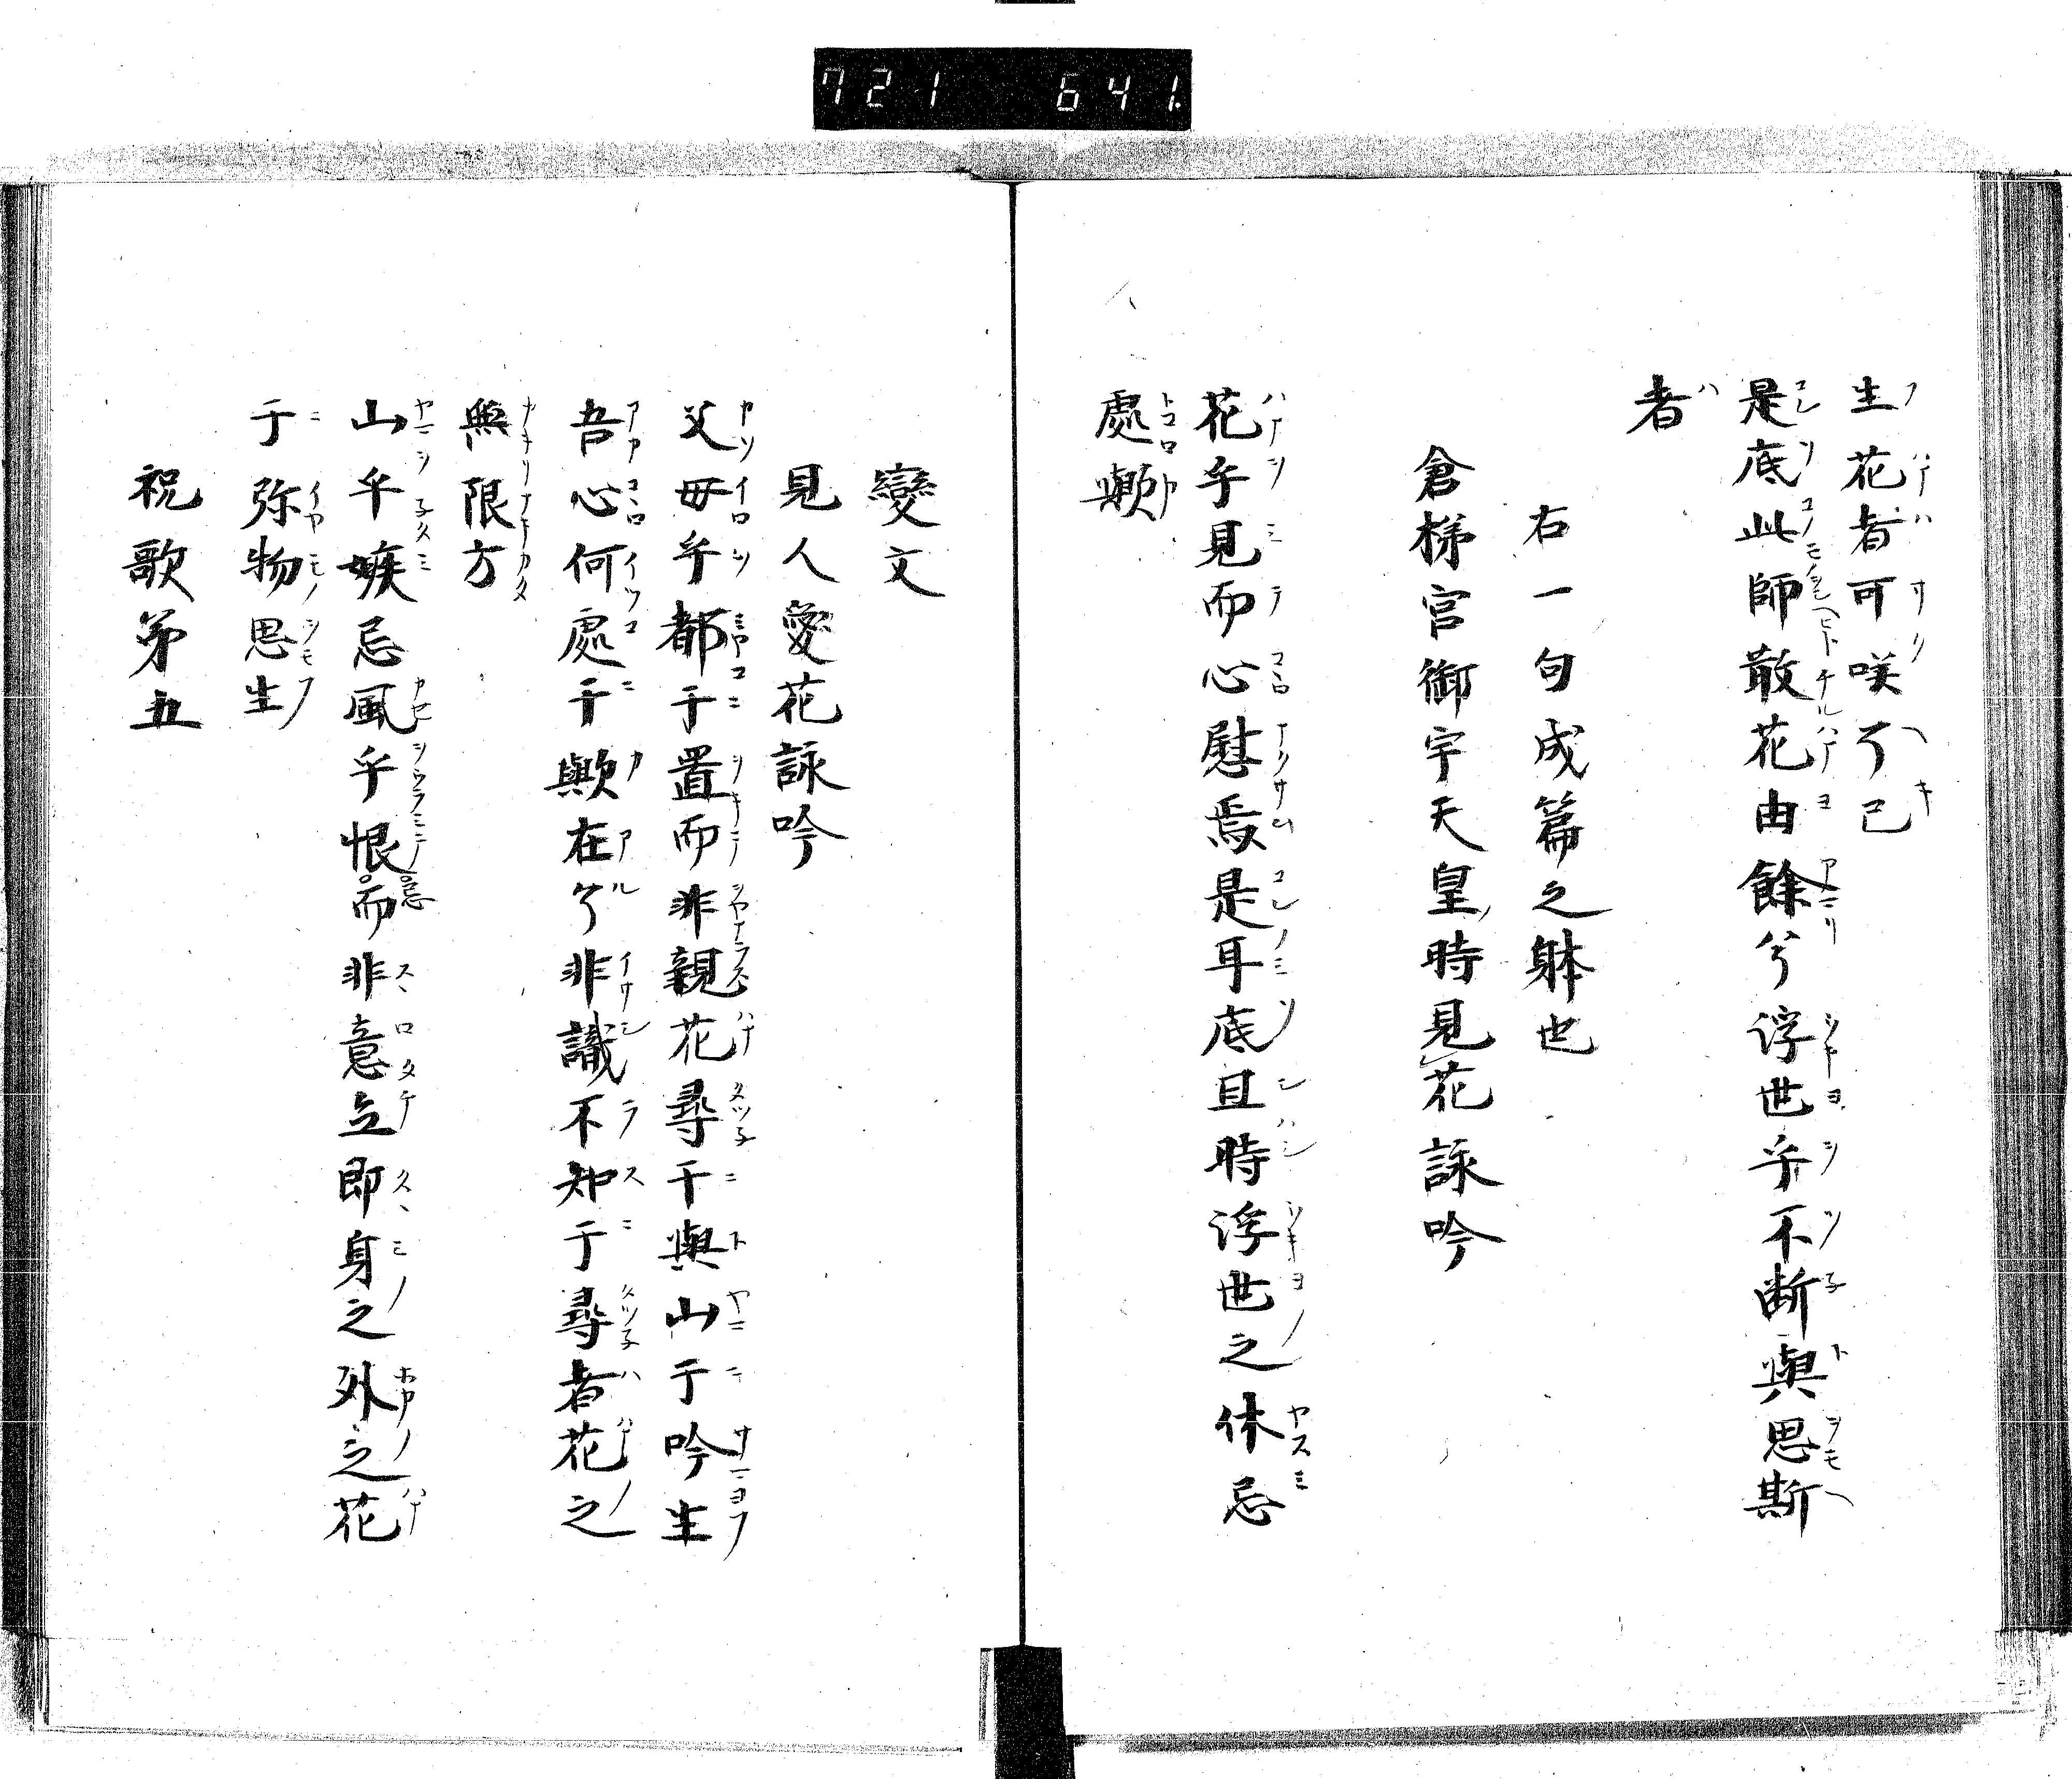 721 641.
生花者可咲兮己
是底此師散花由餘兮浮世乎不断與思斯
者
右一句成篇之躰也
倉梯宮御宇天皇時見花詠吟
花乎見而心慰焉是耳底且時浮世之休忌
處歟
變文
見人愛花詠吟
父母乎都于置而非親花尋于與山于吟生
吾心何處于歟在兮非識不知于尋者花之
無限方
山乎嫉忌風乎恨而非意立即身之外之花
于弥物思生
祝歌第五